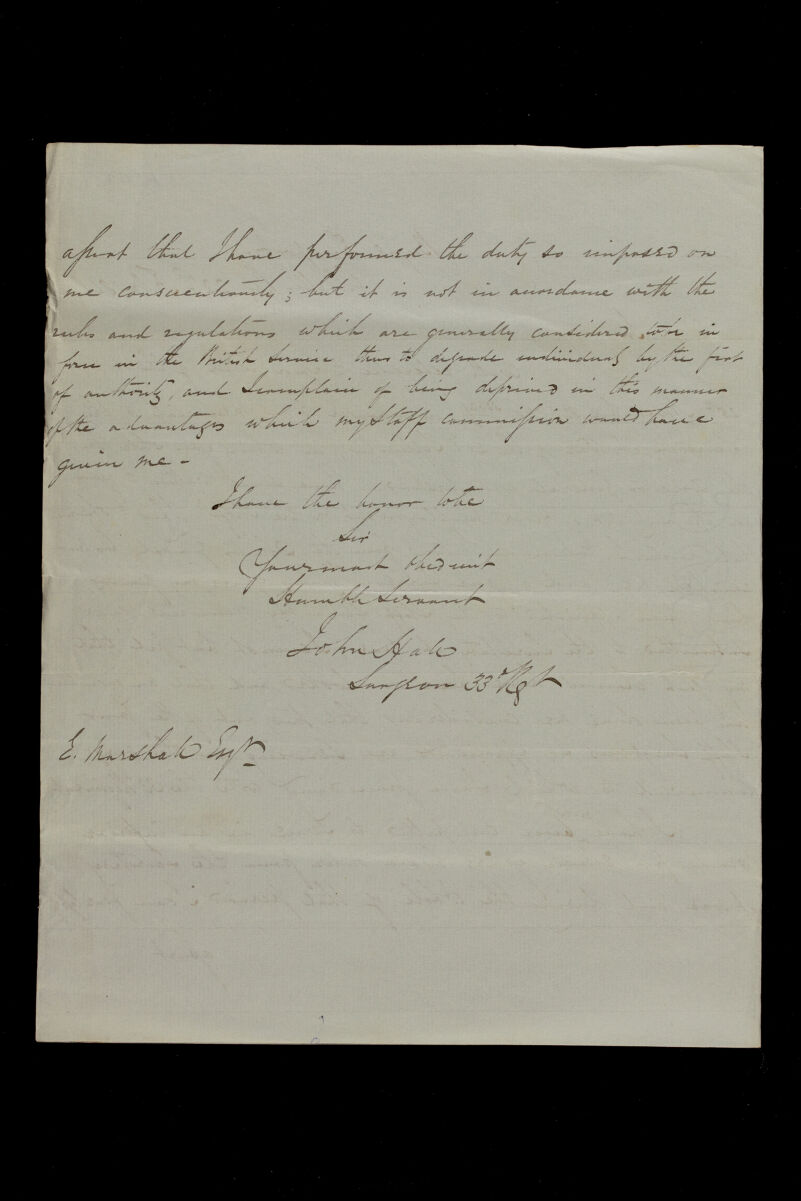 assert that I have performed the duty so imposed on
me conscientiously; but it is not in accordance with the
rules and regulations which are generally considered to be in
force in the British Service thus to degrade individuals by the fiat
of authority, and I complain of being deprived in this manner
of the advantages which my Staff commission would have
given me -
I have the honor to be
Sir
Your most obedient
Humble Servant
John Hall
Surgeon 33d Regt
E. Marshall Esqr